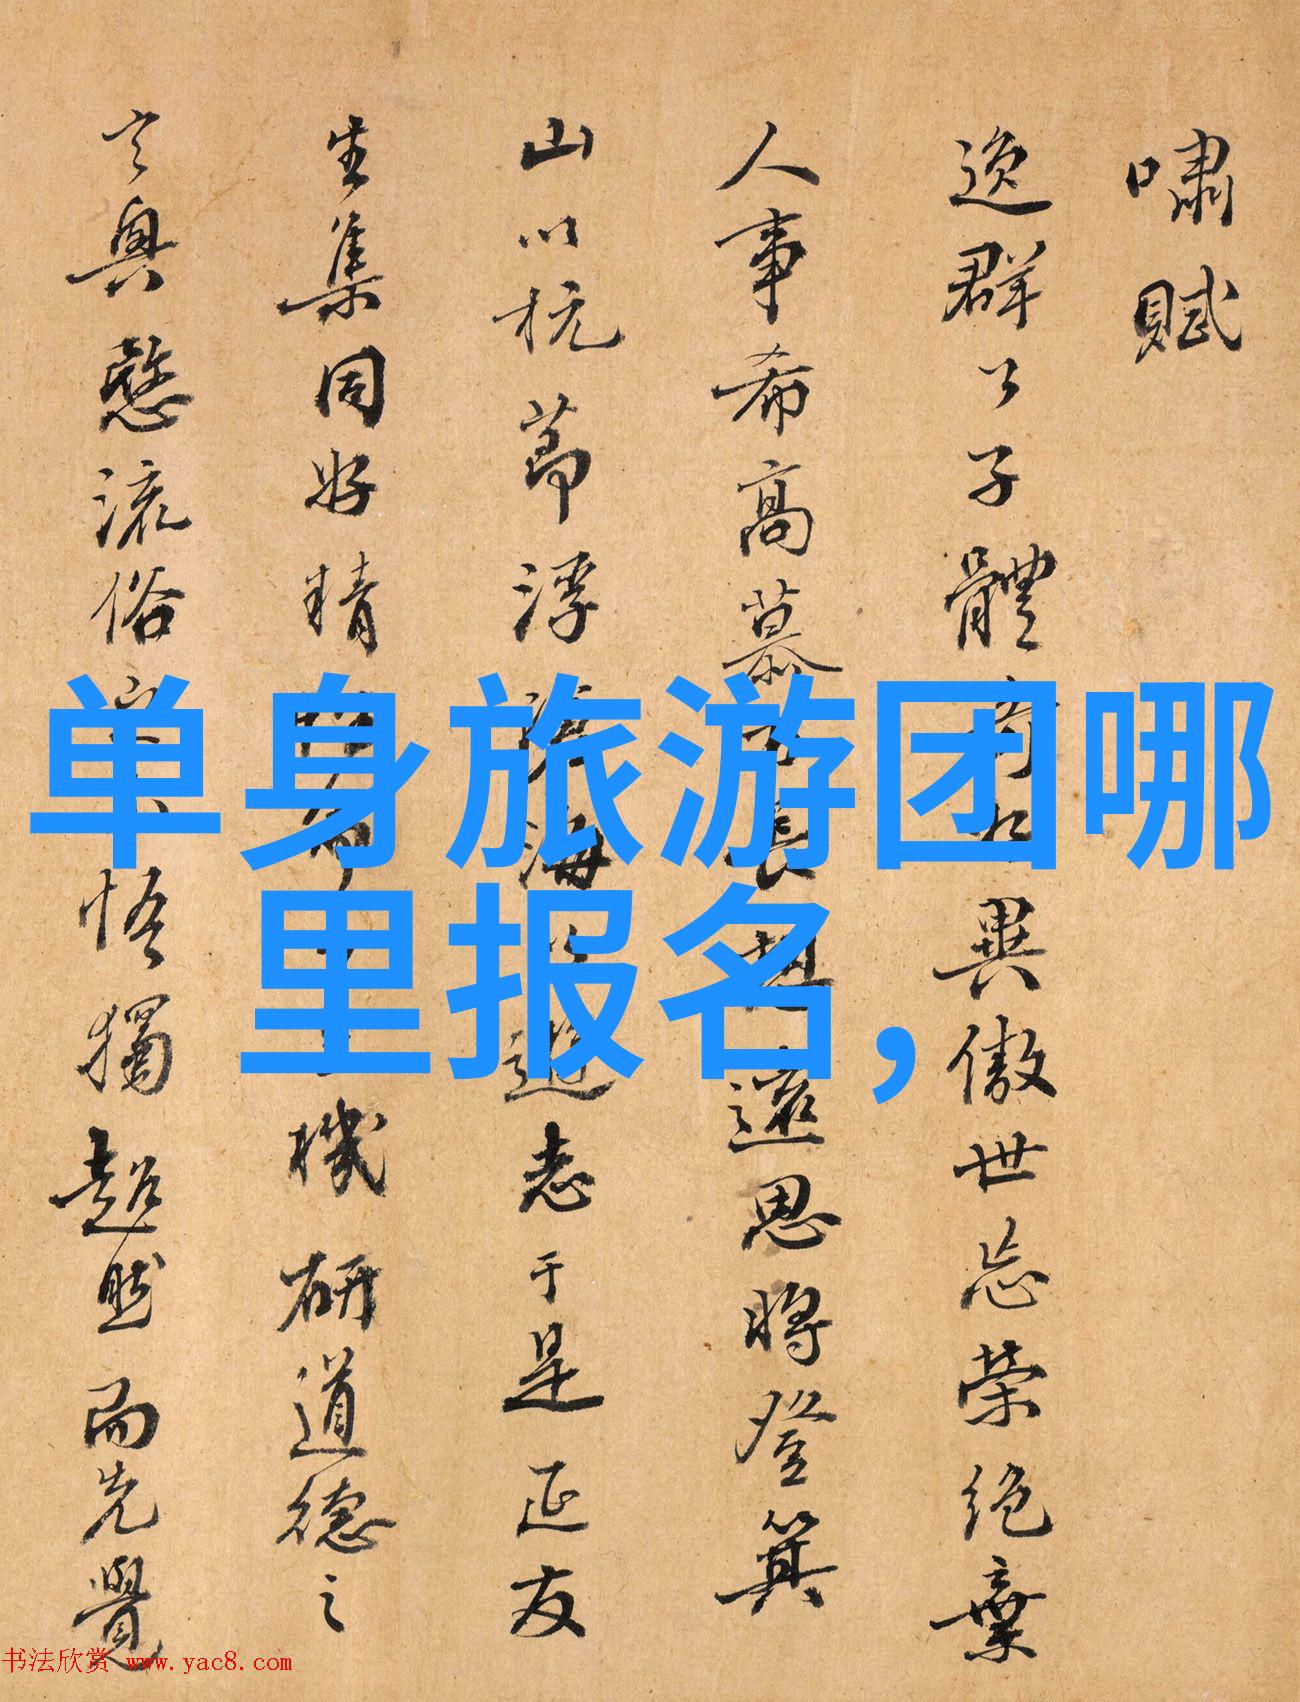 嘯賦
逸群公子體異傲世忘榮絕棄
人事希高慕長遠思將登箕
山以抗節浮海遊志于是延友
生集同好精機研道德之
玄奧愍流俗悟獨超然而先覺
单身旅游团哪
里报名,
书法欣赏 www.yac8.com